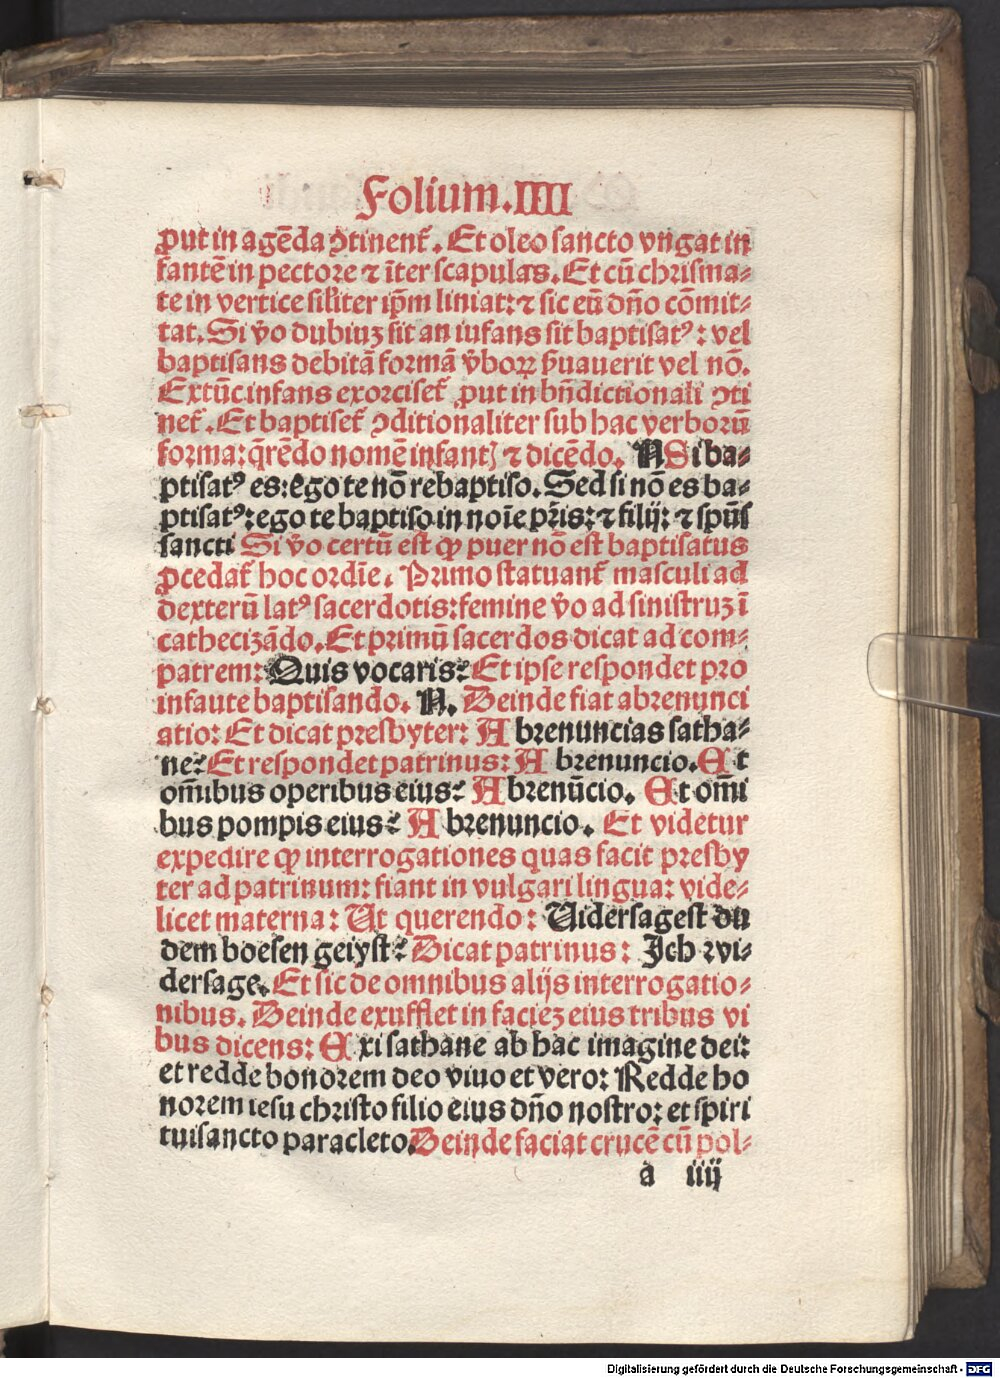 Folium.IIII
ꝓut in agēda ꝯtinent᷑. Et oleo sancto vngat in
fantē in pectore ⁊ īter scapulas. Et cū chrisma⸗
te in vertice sil̓iter ip̄m liniat: ⁊ sic eū dn̄o cōmit⸗
tat. Si v̄o dubiuꝫ sit an iufans sit baptisatꝰ: vel
baptisans debitā formā v̄boꝝ ẜuauerit vel nō.
Extūc infans exorciset᷑ ꝓut in bn̄dictionali ꝯti
net᷑. Et baptiset᷑ ꝯditionaliter sub hac verborū
forma: q̄rēdo nomē infantꝭ ⁊ dicēdo. N Si ba⸗
ptisatꝰ es: ego te nō rebaptiso. Sed si nō es ba⸗
ptisatꝰ: ego te baptiso in noīe pr̄is: ⁊ filij: ⁊ spūs
sancti Si v̄o certū est ꝙ puer nō est baptisatus
ꝓcedat᷑ hoc ordīe. Primo statuant᷑ masculi ad
dexterū latꝰ sacerdotis: femine v̄o ad sinistruꝫ ī
cathecizādo. Et primū sacerdos dicat ad com⸗
patrem: Quis vocaris? Et ipse respondet pro
infaute baptisando. N. Deinde fiat abrenunci
atio: Et dicat presbyter: A brenuncias satha⸗
ne? Et respondet patrinus: A brenuncio. E t
om̄ibus operibus eius? A brenūcio. E t om̄i
bus pompis eius? A brenuncio. Et videtur
expedire ꝙ interrogationes quas facit presby
ter ad patrinum: fiant in vulgari lingua: vide⸗
licet materna: Ut querendo: Uidersagest du
dem boesen geiyst? Dicat patrinus: Jch wi⸗
dersage. Et sic de omnibus alijs interrogatio⸗
nibus. Deinde exufflet in facieꝫ eius tribus vi
bus dicens: E xi sathane ab hac imagine dei:
et redde honorem deo viuo et vero: Redde ho
norem iesu christo filio eius dn̄o nostro: et spiri
tuisancto paracleto. Deinde faciat crucē cū pol⸗
a iiij
Digitalisierung gefördert durch die Deutsche Forschungsgemeinschaft - DFG